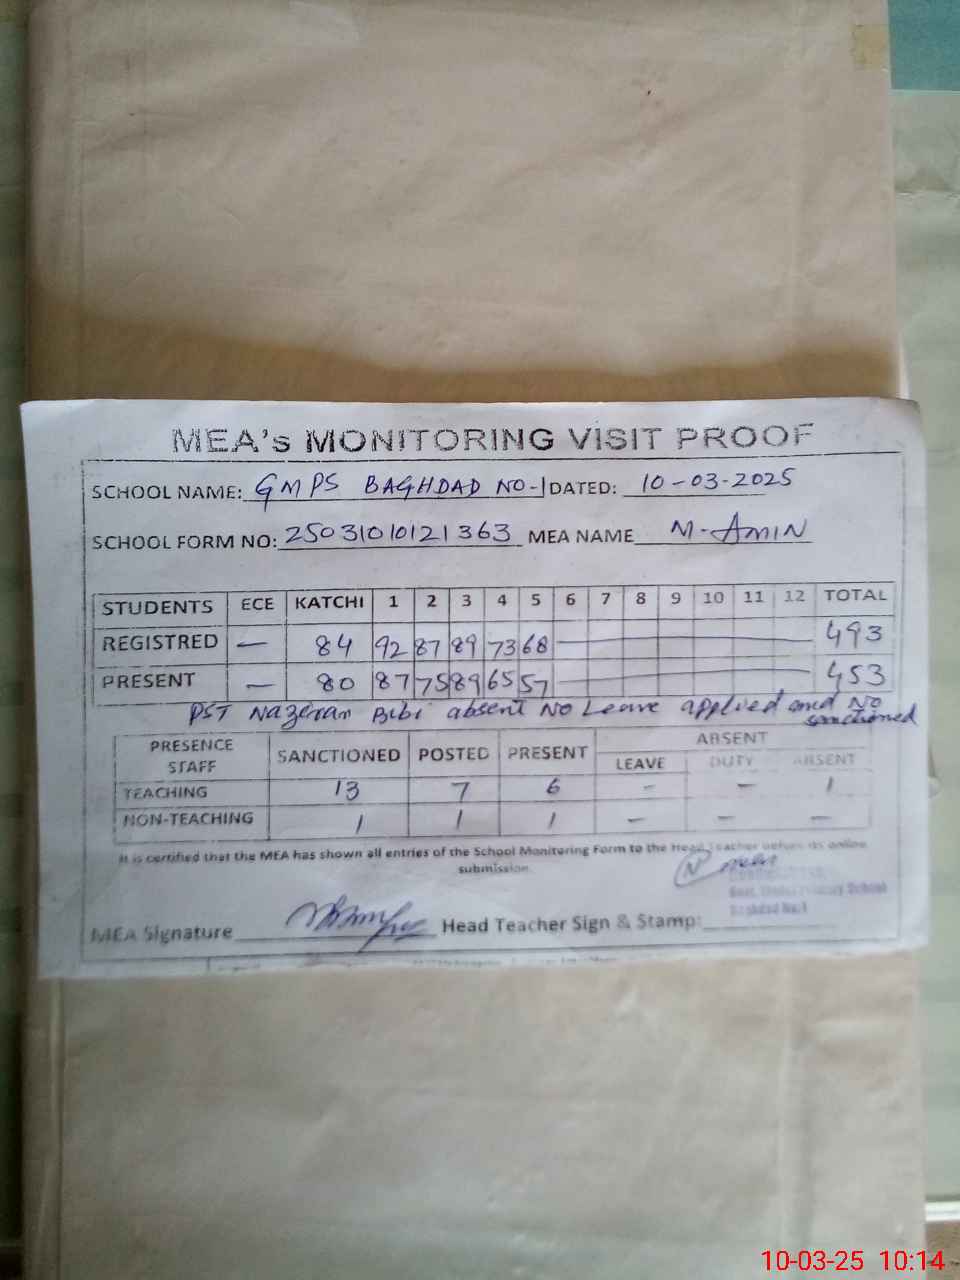 MEA's MONITORING VISIT PROOF
SCHOOL NAME: GMPS BAGHDAD NO-1 DATED: 10-03-2025
SCHOOL FORM NO: 25031010121363 MEA NAME M-AMIN
STUDENTS ECE KATCHI 1 2 3 4 5 6 7 8 9 10 11 12 TOTAL
REGISTRED — 84 92 87 89 73 68 — 493
PRESENT — 80 87 75 89 65 57 — 453
PST Nazeran Bibi absent No Leave applied and No sanctioned
PRESENCE STAFF SANCTIONED POSTED PRESENT ABSENT
LEAVE DUTY ABSENT
TEACHING 13 7 6 - - 1
NON-TEACHING 1 1 1 - - -
It is certified that the MEA has shown all entries of the School Monitoring Form to the Head Teacher before its online
submission.
MEA Signature Head Teacher Sign & Stamp:
Baghdad No.1
10-03-25 10:14